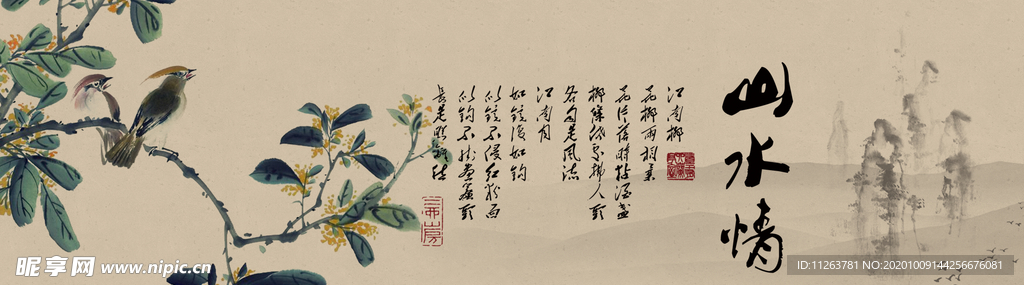 山水情
江南柳
花柳兩相柔
花片落時粘酒盞
柳條低處拂人頭
各自是風流
江南月
如鏡復如鉤
似鏡不侵紅粉面
似鉤不掛畫簾頭
長是照離愁
昵享网 www.nipic.cn
ID:11263781 NO:20201009144256676081